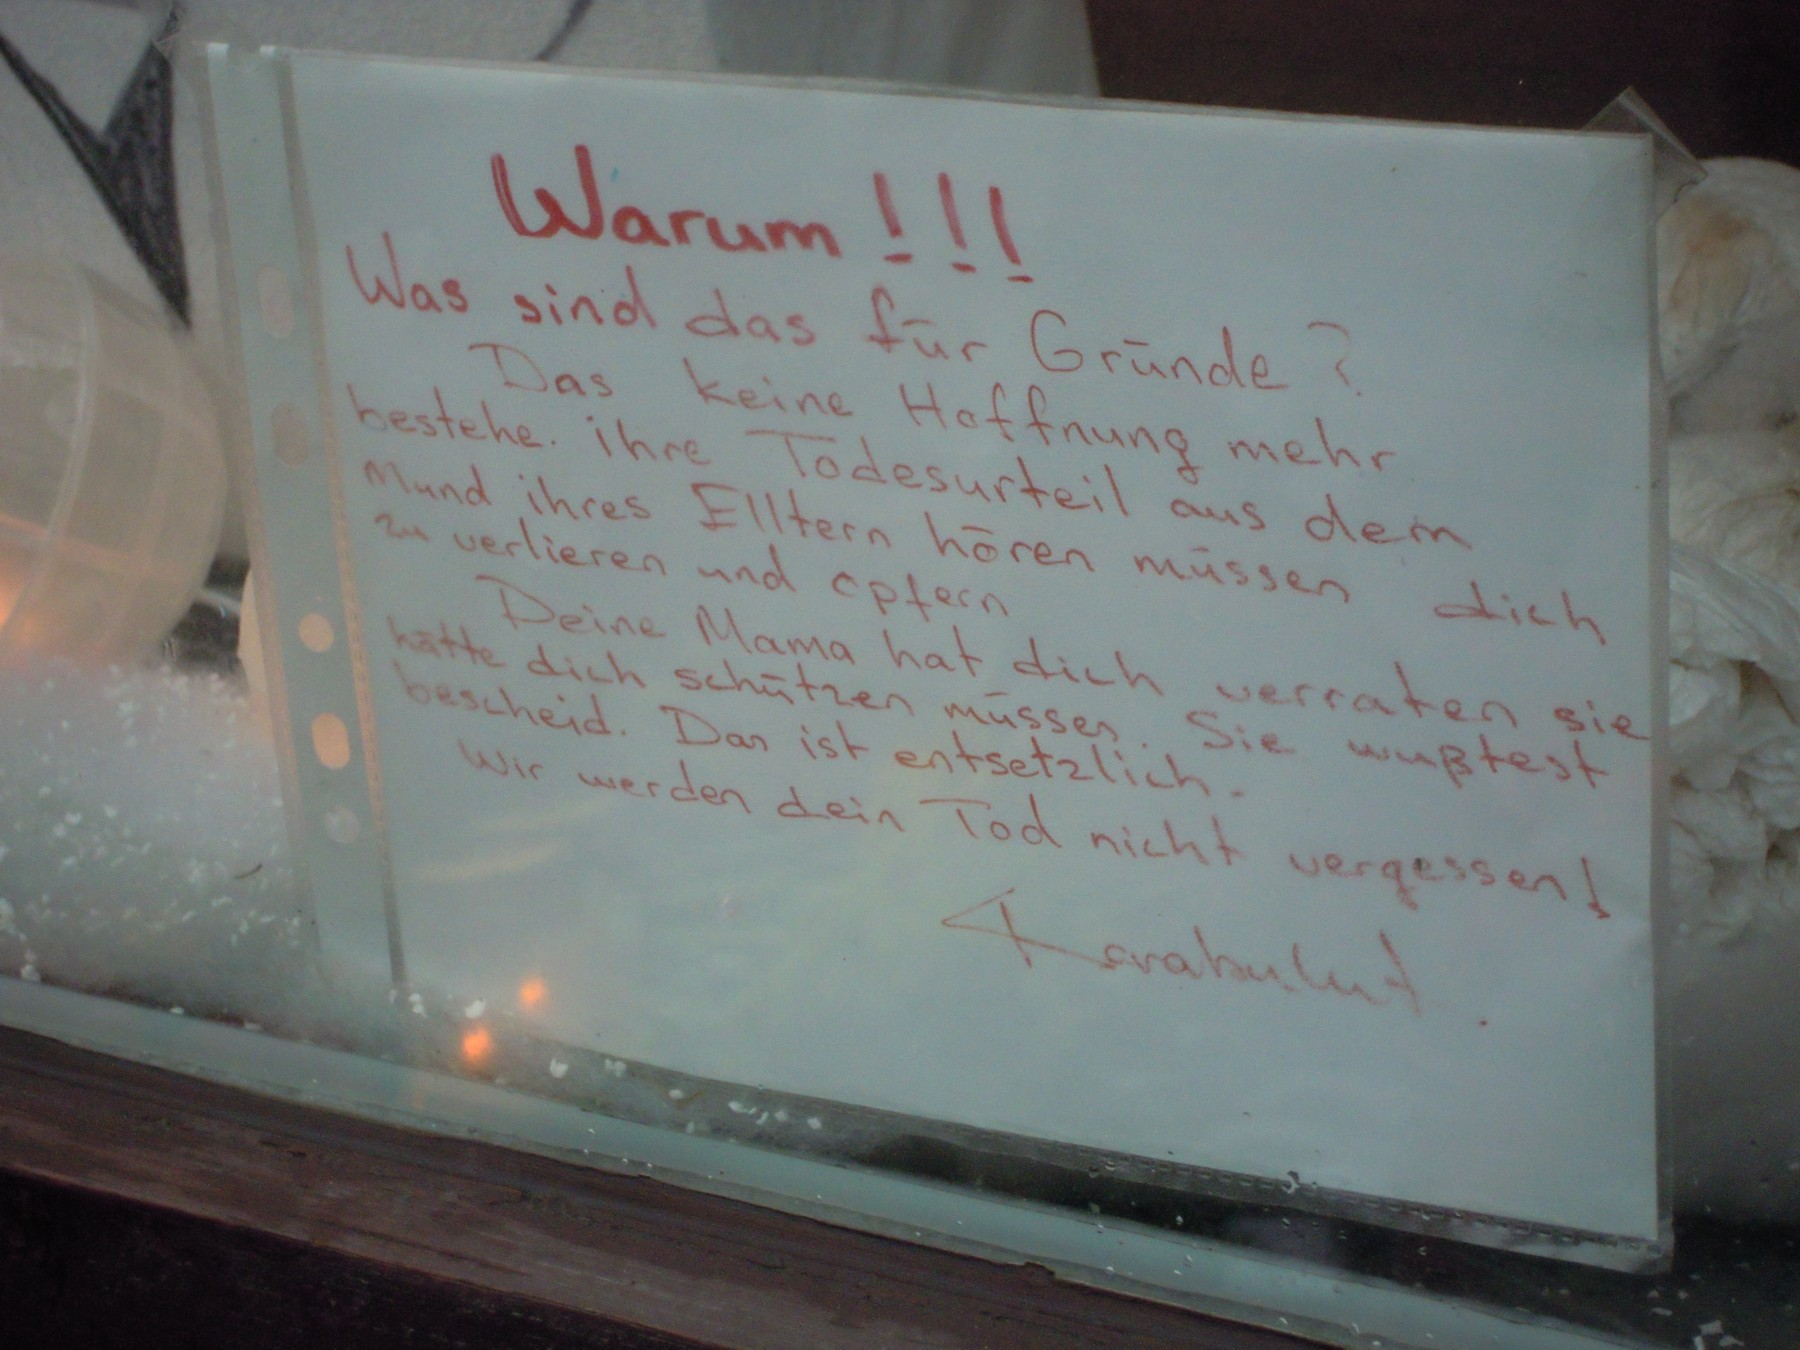 Warum!!!
Was sind das für Gründe?
Das keine Hoffnung mehr
bestehe. ihre Todesurteil aus dem
Mund ihres Elltern hören müssen dich
zu verlieren und opfern
Deine Mama hat dich verraten sie
hätte dich schützen müssen. Sie wußtest
bescheid. Das ist entsetzlich.
Wir werden dein Tod nicht vergessen!
Karabulut